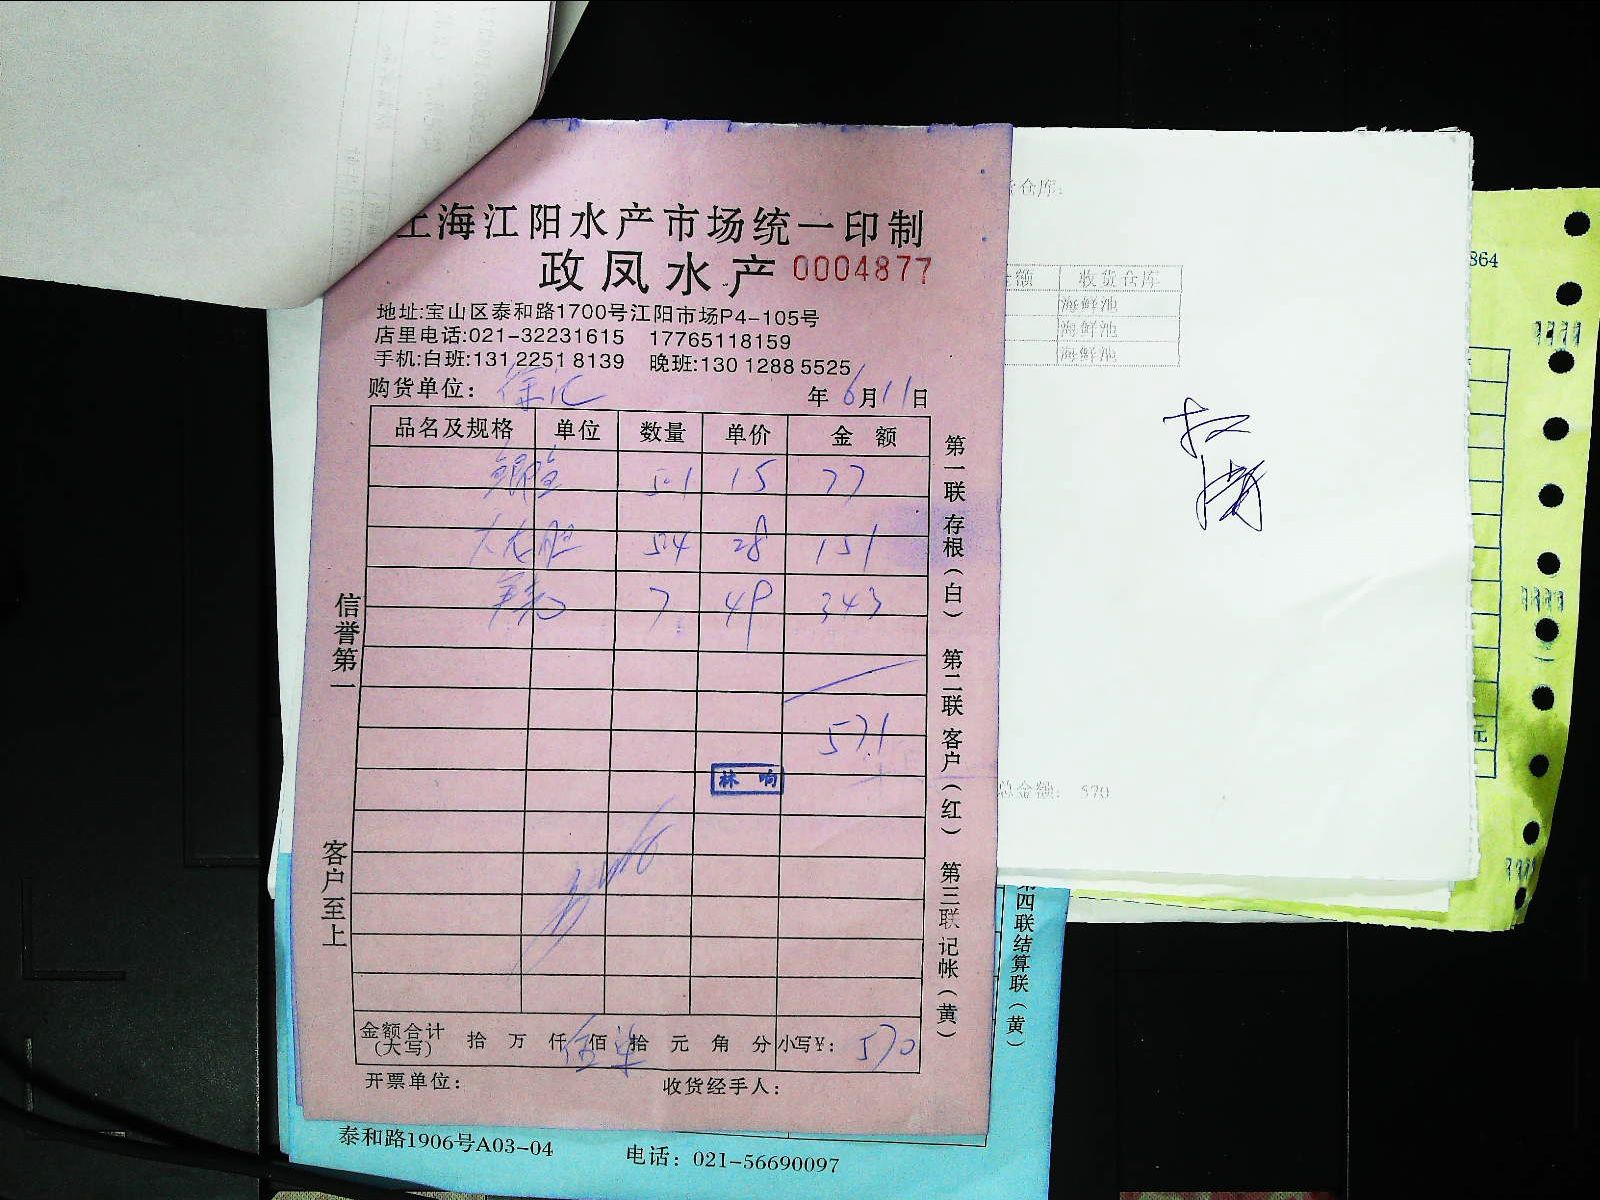 上海江阳水产市场统一印制
政凤水产 0004877
地址:宝山区泰和路1700号江阳市场P4-105号
店里电话:021-32231615 17765118159
手机:白班:131 2251 8139 晚班:130 1288 5525
购货单位: 徐汇 年 6月11日
品名及规格 单位 数量 单价 金额
5.1 15 77
5.4 28 151
7 49 343
571
林响
金额合计(大写) 拾 万 仟 佰 拾 元 角 分 小写¥: 570
开票单位: 收货经手人:
信誉第一
客户至上
第一联 存根(白) 第二联 客户(红) 第三联 记帐(黄)
仓库:
额 收货仓库
海鲜池
海鲜池
海鲜池
总金额: 570
864
元
第四联结算联(黄)
泰和路1906号A03-04
电话: 021-56690097